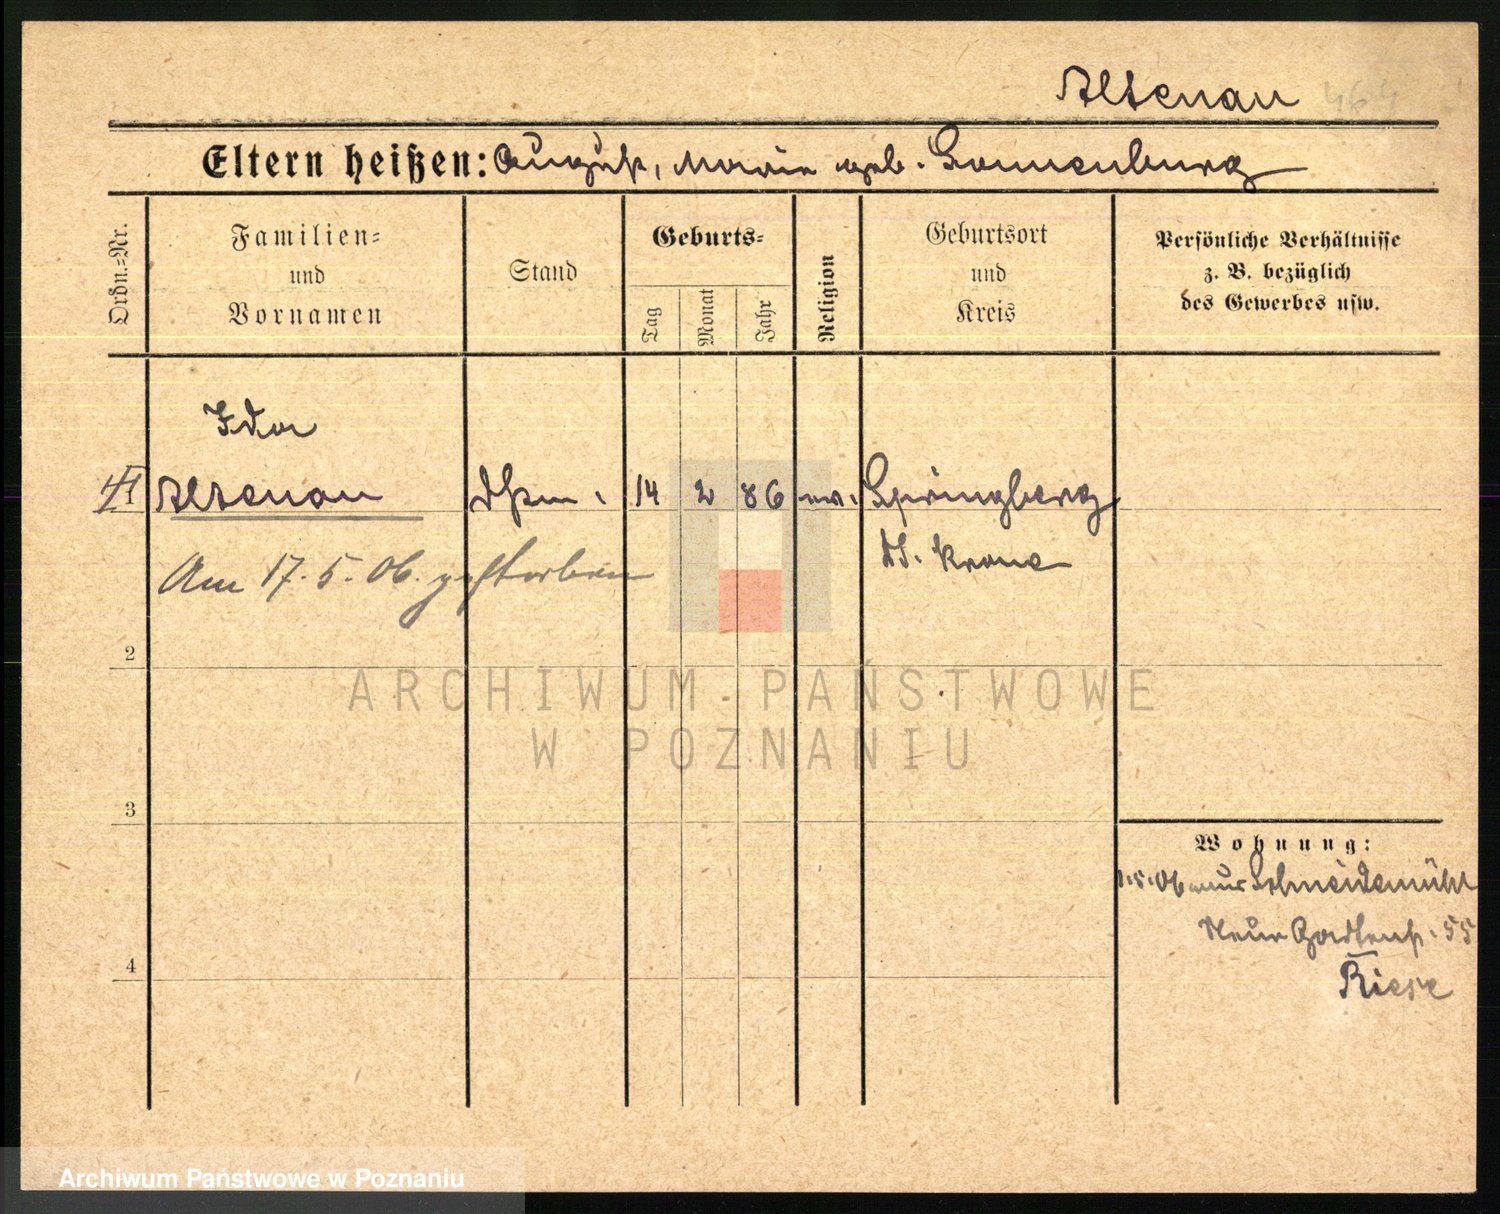 Altenau
464
Eltern heißen: August, Marie geb. Sonnenburg
Ordn.-Nr.
Familien- und Vornamen
Stand
Geburts-
Tag
Monat
Jahr
Religion
Geburtsort und Kreis
Persönliche Verhältnisse
z. B. bezüglich
des Gewerbes usw.
Ida
1 Altenau 14 2 86 ev. Springberg
Dt. Krone
Am 17. 5. 06. gestorben
2
3
4
Wohnung:
Schneidemühl
Neue 55
Riese
ARCHIWUM PAŃSTWOWE
W POZNANIU
Archiwum Państwowe w Poznaniu